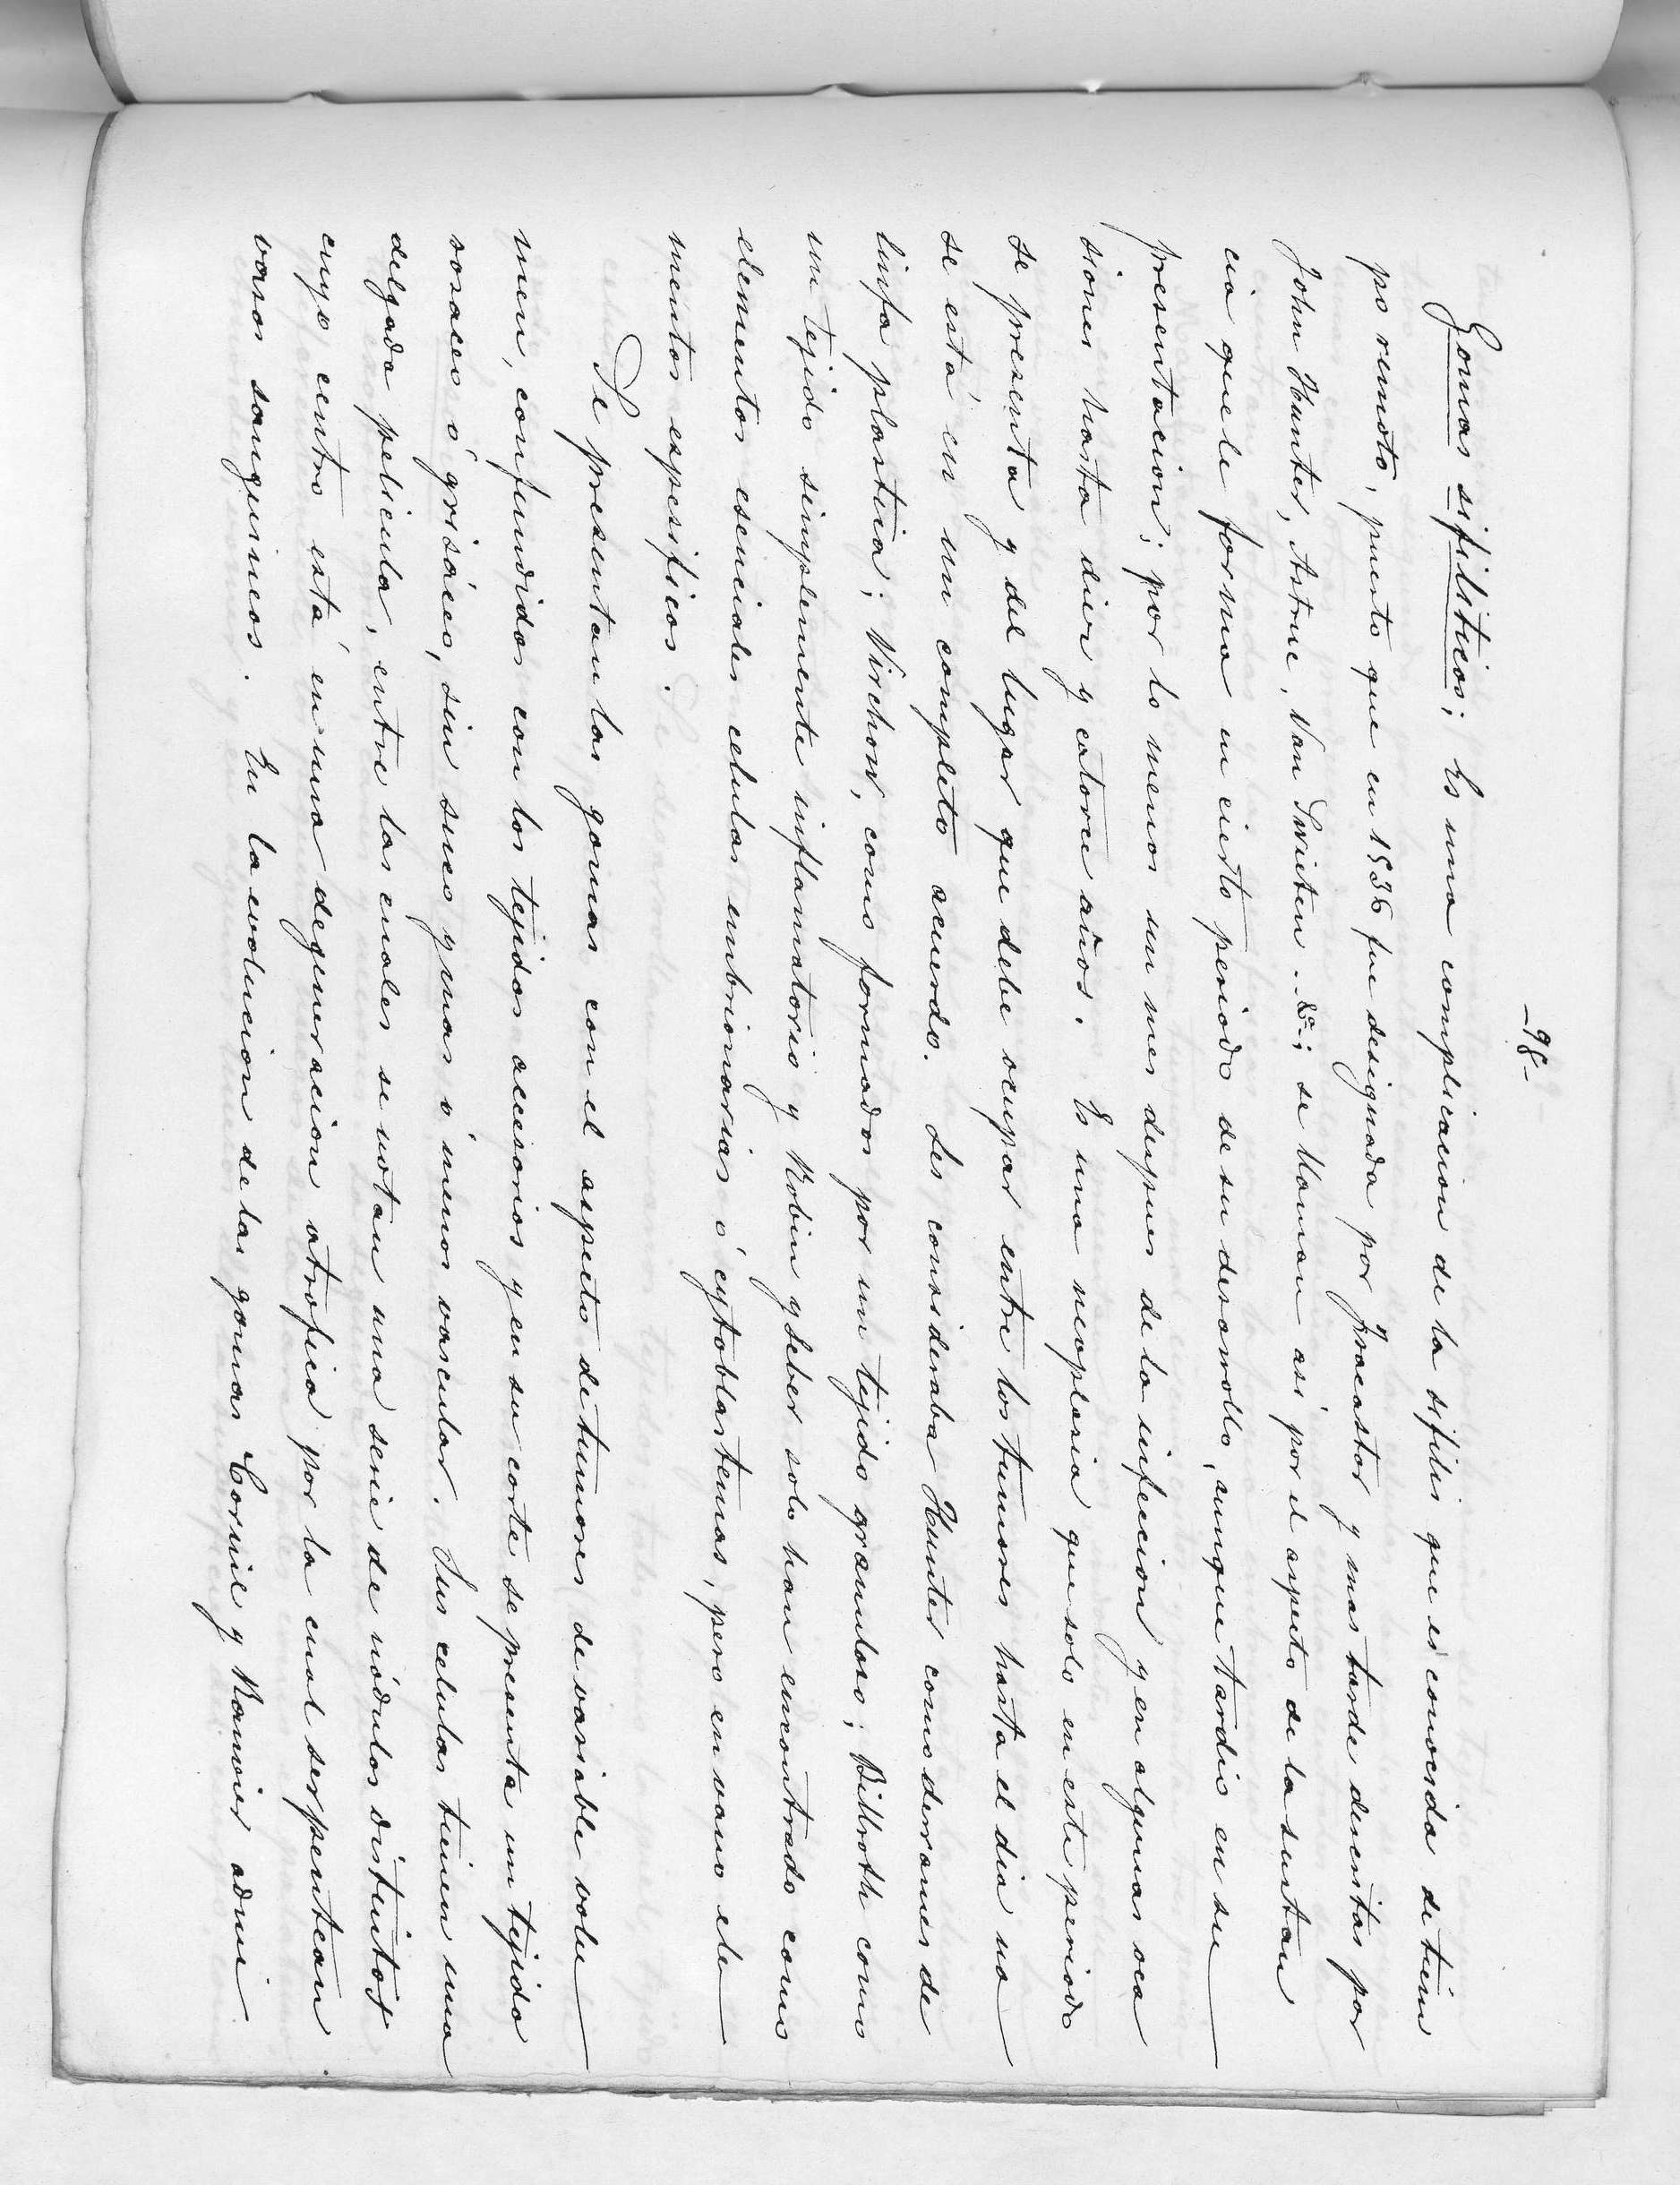 -98-
Gomas sifiliticos; Es una complicacion de la sifilis que es conocida de tiem
po remoto, puesto que en 1536 fue designada por Fracastor y mas tarde descritas por
John Hunter, Astruc, Van Swieten..&ª; se llaman asi por el aspecto de la sustan
cia que le forma en cierto periodo de su desarrollo, aunque tardio en su
presentacion; por lo menos un mes despues de la infeccion y en algunas oca
siones hasta diez y catorce años. Es una neoplasia que solo en este periodo
se presenta y del lugar que debe ocupar entre los tumores hasta el dia no
se está en un completo acuerdo. Les consideraba Hunter como derrames de
linfa plastica; Virchow, como formados por un tejido granuloso; Billroth como
un tejido simplemente inflamatorio y Robin y Leber solo han encontrado como
elementos esenciales celulas embrionarias ó cytoblastemas, pero en vano ele
mentos espesificos.
Se presentan las gomas con el aspecto de tumores de variable volu
men, confundidos con los tejidos accesorios y en su corte se presenta un tejido
rosaceo ó grisáceo, sin suco y mas ó menos vascular. Sus celulas tienen una
delgada pelicula, entre las cuales se notan una serie de nódulos distintos
cuyo centro está en una degeneracion atrofica por la cual serpentean
vasos sanguineos. En la evolucion de las gomas Cornil y Ranvier admi